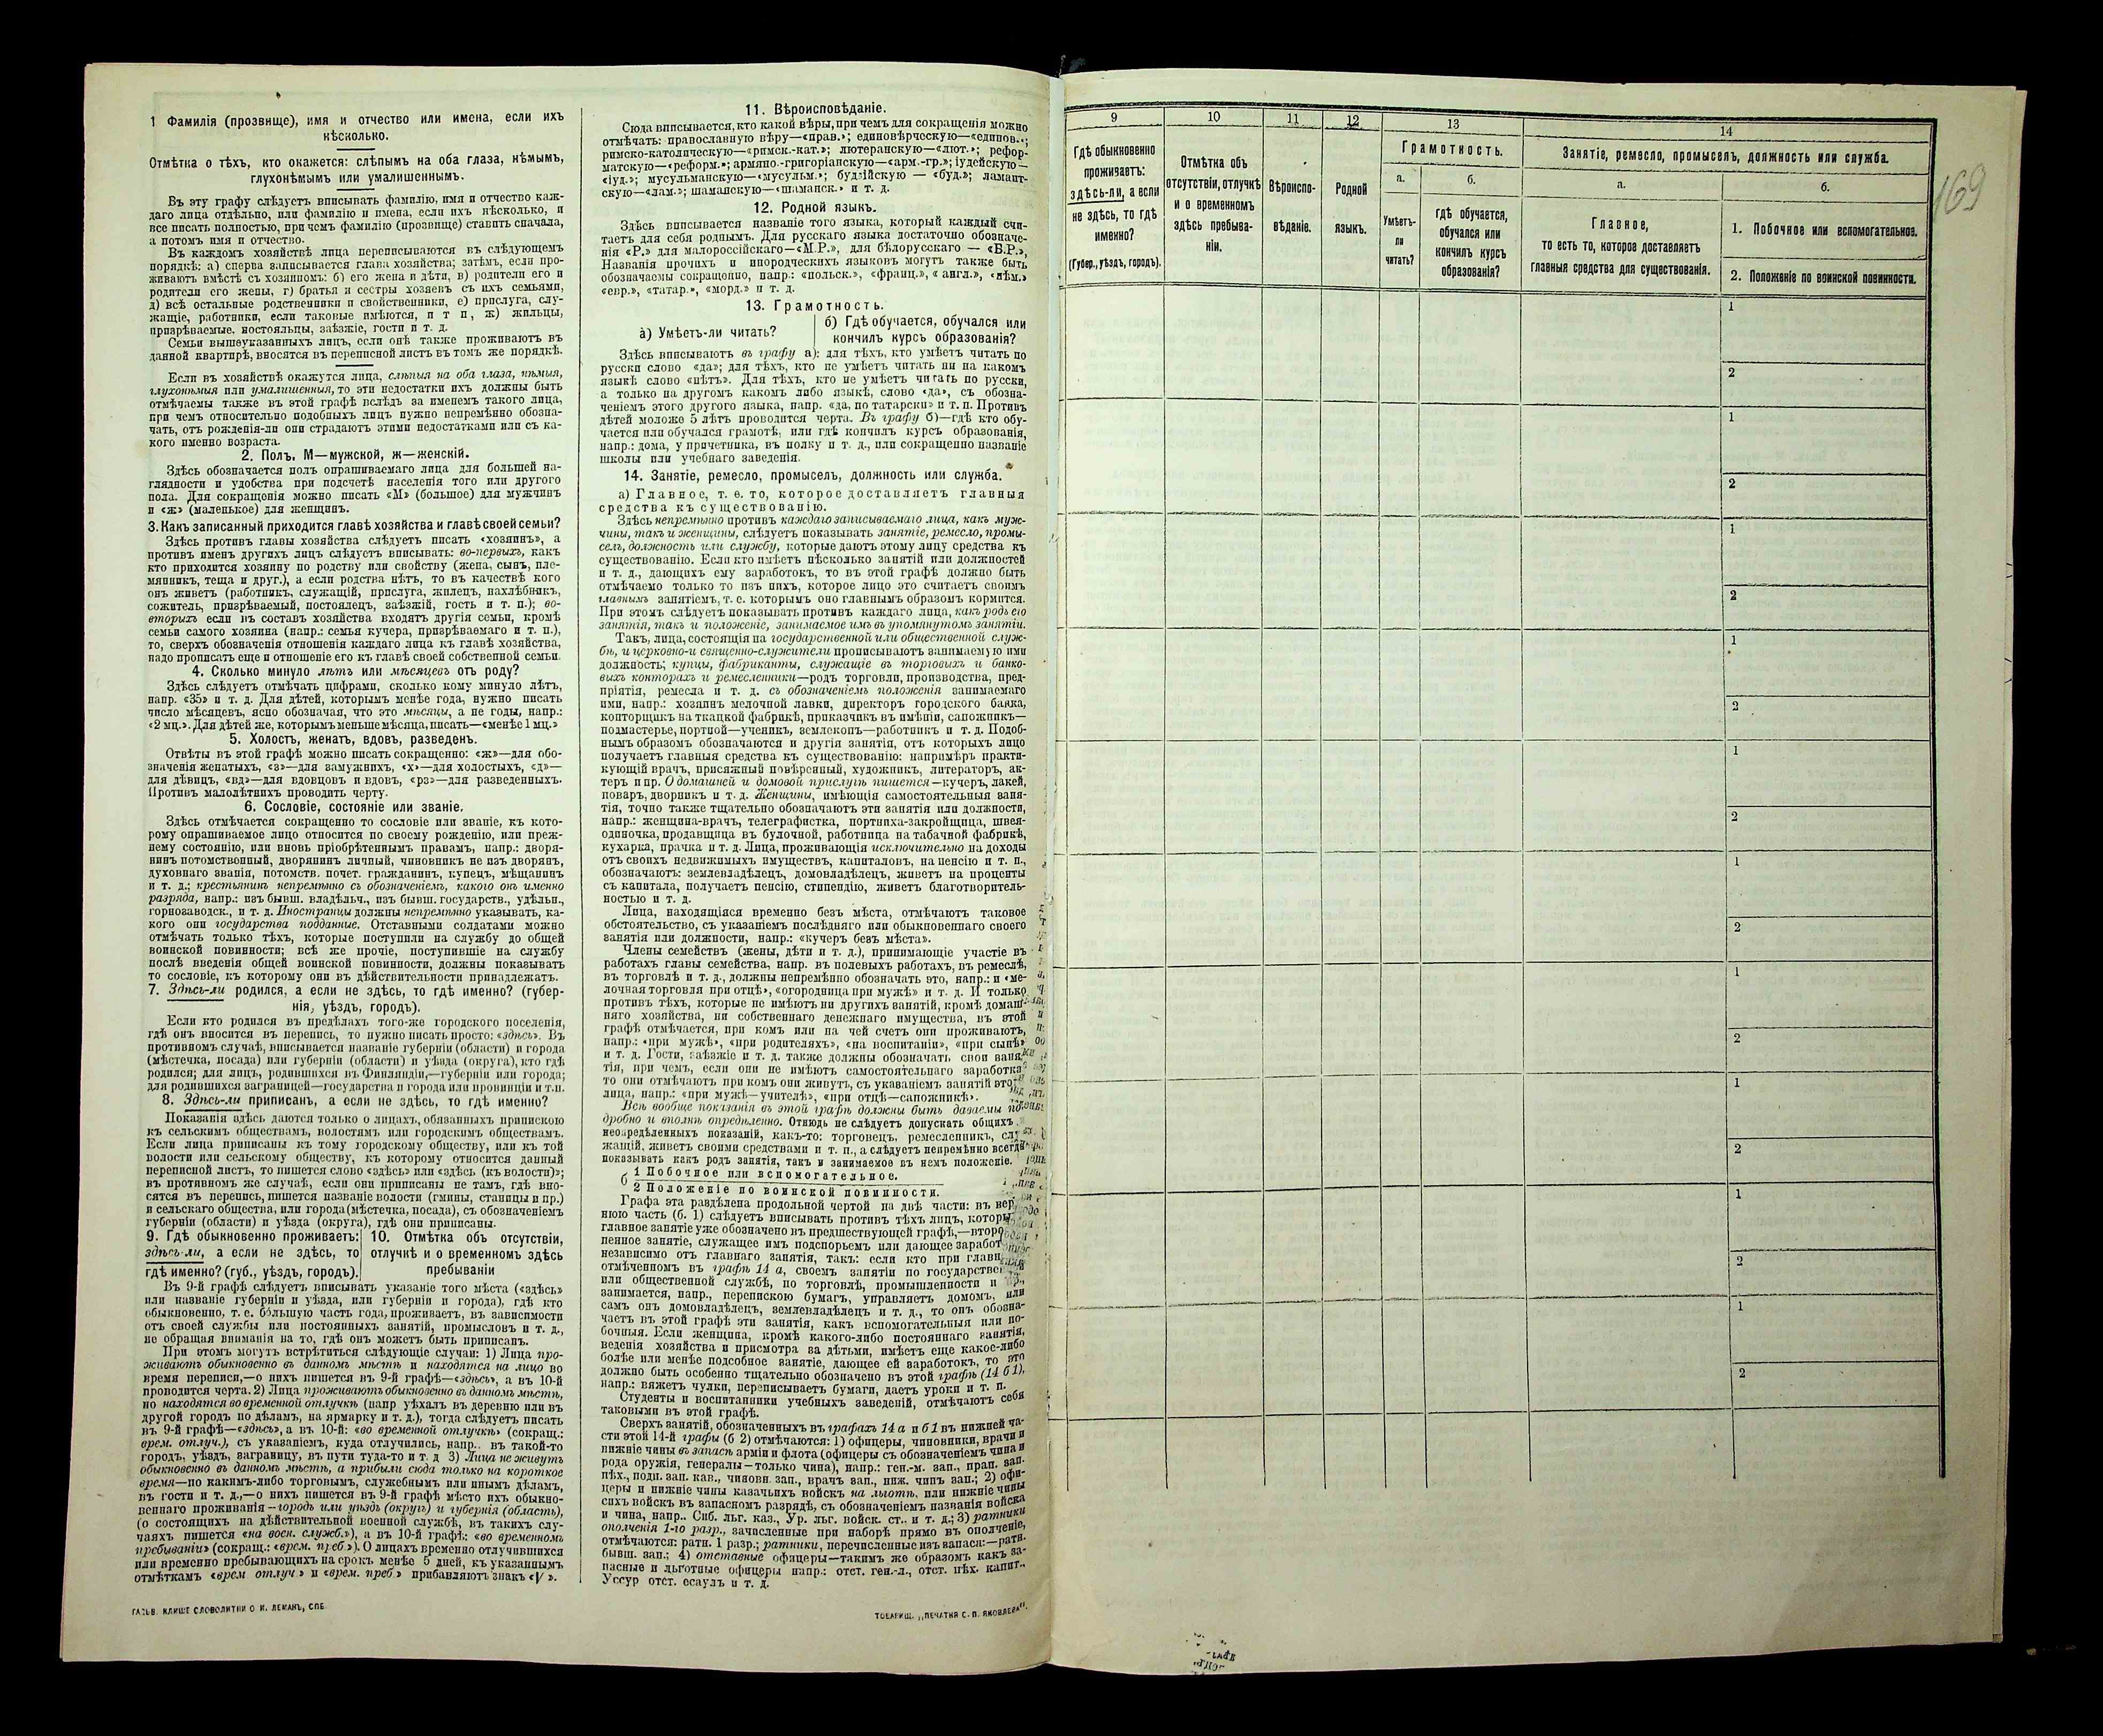 1 Фамилія (прозвище), имя и отчество или имена, если ихъ
нѣсколько.
Отмѣтка о тѣхъ, кто окажется: слѣпымъ на оба глаза, нѣмымъ,
глухонѣмымъ или умалишеннымъ.
Въ эту графу слѣдуетъ вписывать фамилію, имя и отчество каж-
даго лица отдѣльно, или фамилію и имена, если ихъ нѣсколько, и
все писать полностью, при чемъ фамилію (прозвище) ставить сначала,
а потомъ имя и отчество.
Въ каждомъ хозяйствѣ лица переписываются въ слѣдующемъ
порядкѣ: а) сперва записывается глава хозяйства; затѣмъ, если про-
живаютъ вмѣстѣ съ хозяиномъ: б) его жена и дѣти, в) родители его и
родители его жены, г) братья и сестры хозяевъ съ ихъ семьями,
д) всѣ остальные родственники и свойственники, е) прислуга, слу-
жащіе, работники, если таковые имѣются, и т п, ж) жильцы,
призрѣваемые, постояльцы, заѣзжіе, гости и т. д.
Семьи вышеуказанныхъ лицъ, если онѣ также проживаютъ въ
данной квартирѣ, вносятся въ переписной листъ въ томъ же порядкѣ.
Если въ хозяйствѣ окажутся лица, слѣпыя на оба глаза, нѣмыя,
глухонѣмыя или умалишенныя, то эти недостатки ихъ должны быть
отмѣчаемы также въ этой графѣ вслѣдъ за именемъ такого лица,
при чемъ относительно подобныхъ лицъ нужно непремѣнно обозна-
чать, отъ рожденія-ли они страдаютъ этими недостатками или съ ка-
кого именно возраста.
2. Полъ. М—мужской, ж—женскій.
Здѣсь обозначается полъ опрашиваемаго лица для большей на-
глядности и удобства при подсчетѣ населенія того или другого
пола. Для сокращенія можно писать «М» (большое) для мужчинъ
и «ж» (маленькое) для женщинъ.
3. Какъ записанный приходится главѣ хозяйства и главѣ своей семьи?
Здѣсь противъ главы хозяйства слѣдуетъ писать «хозяинъ», а
противъ именъ другихъ лицъ слѣдуетъ вписывать: во-первыхъ, какъ
кто приходится хозяину по родству или свойству (жена, сынъ, пле-
мянникъ, теща и друг.), а если родства нѣтъ, то въ качествѣ кого
онъ живетъ (работникъ, служащій, прислуга, жилецъ, нахлѣбникъ,
сожитель, призрѣваемый, постоялецъ, заѣзжій, гость и т. п.); во-
вторыхъ если въ составъ хозяйства входятъ другія семьи, кромѣ
семьи самого хозяина (напр.: семья кучера, призрѣваемаго и т. п.),
то, сверхъ обозначенія отношенія каждаго лица къ главѣ хозяйства,
надо прописать еще и отношеніе его къ главѣ своей собственной семьи.
4. Сколько минуло лѣтъ или мѣсяцевъ отъ роду?
Здѣсь слѣдуетъ отмѣчать цифрами, сколько кому минуло лѣтъ,
напр. «35» и т. д. Для дѣтей, которымъ менѣе года, нужно писать
число мѣсяцевъ, ясно обозначая, что это мѣсяцы, а не годы, напр.:
«2 мц.». Для дѣтей же, которымъ меньше мѣсяца, писать—«менѣе 1 мц.»
5. Холостъ, женатъ, вдовъ, разведенъ.
Отвѣты въ этой графѣ можно писать сокращенно: «ж»—для обо-
значенія женатыхъ, «з»—для замужнихъ, «х»—для холостыхъ, «д»—
для дѣвицъ, «вд»—для вдовцовъ и вдовъ, «рз»—для разведенныхъ.
Противъ малолѣтнихъ проводить черту.
6. Сословіе, состояніе или званіе.
Здѣсь отмѣчается сокращенно то сословіе или званіе, къ кото-
рому опрашиваемое лицо относится по своему рожденію, или преж-
нему состоянію, или вновь пріобрѣтеннымъ правамъ, напр.: дворя-
нинъ потомственный, дворянинъ личный, чиновникъ не изъ дворянъ,
духовнаго званія, потомств. почет. гражданинъ, купецъ, мѣщанинъ
и т. д.; крестьянинъ непремѣнно съ обозначеніемъ, какого онъ именно
разряда, напр.: изъ бывш. владѣльч., изъ бывш. государств., удѣльн.,
горнозаводск., и т. д. Иностранцы должны непремѣнно указывать, ка-
кого они государства подданные. Отставными солдатами можно
отмѣчать только тѣхъ, которые поступили на службу до общей
воинской повинности; всѣ же прочіе, поступившіе на службу
послѣ введенія общей воинской повинности, должны показывать
то сословіе, къ которому они въ дѣйствительности принадлежатъ.
7. Здѣсь-ли родился, а если не здѣсь, то гдѣ именно? (губер-
нія, уѣздъ, городъ).
Если кто родился въ предѣлахъ того-же городского поселенія,
гдѣ онъ вносится въ перепись, то нужно писать просто: «здѣсь». Въ
противномъ случаѣ, вписывается названіе губерніи (области) и города
(мѣстечка, посада) или губерніи (области) и уѣзда (округа), кто гдѣ
родился; для лицъ, родившихся въ Финляндіи,—губерніи или города;
для родившихся заграницей—государства и города или провинціи и т.п.
8. Здѣсь-ли приписанъ, а если не здѣсь, то гдѣ именно?
Показанія здѣсь даются только о лицахъ, обязанныхъ припискою
къ сельскимъ обществамъ, волостямъ или городскимъ обществамъ.
Если лица приписаны къ тому городскому обществу, или къ той
волости или сельскому обществу, къ которому относится данный
переписной листъ, то пишется слово «здѣсь» или «здѣсь (къ волости)»;
въ противномъ же случаѣ, если они приписаны не тамъ, гдѣ вно-
сятся въ перепись, пишется названіе волости (гмины, станицы и пр.)
и сельскаго общества, или города (мѣстечка, посада), съ обозначеніемъ
губерніи (области) и уѣзда (округа), гдѣ они приписаны.
9. Гдѣ обыкновенно проживаетъ:
здѣсь-ли, а если не здѣсь, то
гдѣ именно? (губ., уѣздъ, городъ).
10. Отмѣтка объ отсутствіи,
отлучкѣ и о временномъ здѣсь
пребываніи
Въ 9-й графѣ слѣдуетъ вписывать указаніе того мѣста («здѣсь»
или названіе губерніи и уѣзда, или губерніи и города), гдѣ кто
обыкновенно, т. е. бо́льшую часть года, проживаетъ, въ зависимости
отъ своей службы или постоянныхъ занятій, промысловъ и т. д.,
не обращая вниманія на то, гдѣ онъ можетъ быть приписанъ.
При этомъ могутъ встрѣтиться слѣдующіе случаи: 1) Лица про-
живаютъ обыкновенно въ данномъ мѣстѣ и находятся на лицо во
время переписи,—о нихъ пишется въ 9-й графѣ—«здѣсь», а въ 10-й
проводится черта. 2) Лица проживаютъ обыкновенно въ данномъ мѣстѣ,
но находятся во временной отлучкѣ (напр уѣхалъ въ деревню или въ
другой городъ по дѣламъ, на ярмарку и т. д.), тогда слѣдуетъ писать
въ 9-й графѣ—«здѣсь», а въ 10-й: «во временной отлучкѣ» (сокращ.:
врем. отлуч.), съ указаніемъ, куда отлучились, напр.. въ такой-то
городъ, уѣздъ, заграницу, въ пути туда-то и т. д 3) Лица не живутъ
обыкновенно въ данномъ мѣстѣ, а прибыли сюда только на короткое
время—по какимъ-либо торговымъ, служебнымъ или инымъ дѣламъ,
въ гости и т. д.,—о нихъ пишется въ 9-й графѣ мѣсто ихъ обыкно-
веннаго проживанія—городъ или уѣздъ (округъ) и губернія (область),
(о состоящихъ на дѣйствительной военной службѣ, въ такихъ слу-
чаяхъ пишется «на воен. службѣ.»), а въ 10-й графѣ: «во временномъ
пребываніи» (сокращ.: «врем. преб.»). О лицахъ временно отлучившихся
или временно пребывающихъ на срокъ менѣе 5 дней, къ указаннымъ
отмѣткамъ «врем отлуч.» и «врем. преб» прибавляютъ знакъ «V».
ГАЛЬВ. КЛИШЕ СЛОВОЛИТНИ О. И. ЛЕМАНЪ, СПБ.
11. Вѣроисповѣданіе.
Сюда вписывается, кто какой вѣры, при чемъ для сокращенія можно
отмѣчать: православную вѣру—«прав.»; единовѣрческую—«единов.»;
римско-католическую—«римск.-кат.»; лютеранскую—«лют.»; рефор-
матскую—«реформ.»; армяно.-григоріанскую—«арм.-гр.»; іудейскую—
«іуд.»; мусульманскую—«мусульм.»; буддійскую — «буд.»; ламаит-
скую—«лам.»; шаманскую—«шаманск.» и т. д.
12. Родной языкъ.
Здѣсь вписывается названіе того языка, который каждый счи-
таетъ для себя роднымъ. Для русскаго языка достаточно обозначе-
нія «Р.» для малороссійскаго—«М.Р.», для бѣлорусскаго — «Б.Р.»,
Названія прочихъ и инородческихъ языковъ могутъ также быть
обозначаемы сокращенно, напр.: «польск.», «франц.», «англ.», «нѣм.»
«евр.», «татар.», «морд.» и т. д.
13. Грамотность.
а) Умѣетъ-ли читать?
б) Гдѣ обучается, обучался или
кончилъ курсъ образованія?
Здѣсь вписываютъ въ графу а): для тѣхъ, кто умѣетъ читать по
русски слово «да»; для тѣхъ, кто не умѣетъ читать ни на какомъ
языкѣ слово «нѣтъ». Для тѣхъ, кто не умѣетъ читать по русски,
а только на другомъ какомъ либо языкѣ, слово «да», съ обозна-
ченіемъ этого другого языка, напр. «да, по татарски» и т. п. Противъ
дѣтей моложе 5 лѣтъ проводится черта. Въ графу б)—гдѣ кто обу-
чается или обучался грамотѣ, или гдѣ кончилъ курсъ образованія,
напр.: дома, у причетника, въ полку и т. д., или сокращенно названіе
школы или учебнаго заведенія.
14. Занятіе, ремесло, промыселъ, должность или служба.
а) Главное, т. е. то, которое доставляетъ главныя
средства къ существованію.
Здѣсь непремѣнно противъ каждаго записываемаго лица, какъ муж-
чины, такъ и женщины, слѣдуетъ показывать занятіе, ремесло, промы-
селъ, должность или службу, которые даютъ этому лицу средства къ
существованію. Если кто имѣетъ нѣсколько занятій или должностей
и т. д., дающихъ ему заработокъ, то въ этой графѣ должно быть
отмѣчаемо только то изъ нихъ, которое лицо это считаетъ своимъ
главнымъ занятіемъ, т. е. которымъ оно главнымъ образомъ кормится.
При этомъ слѣдуетъ показывать противъ каждаго лица, какъ родъ его
занятія, такъ и положеніе, занимаемое имъ въ упомянутомъ занятіи.
Такъ, лица, состоящія на государственной или общественной служ-
бѣ, и церковно-и священно-служители прописываютъ занимаемую ими
должность; купцы, фабриканты, служащіе въ торговыхъ и банко-
выхъ конторахъ и ремесленники—родъ торговли, производства, пред-
пріятія, ремесла и т. д. съ обозначеніемъ положенія занимаемаго
ими, напр.: хозяинъ мелочной лавки, директоръ городского банка,
конторщикъ на ткацкой фабрикѣ, приказчикъ въ имѣніи, сапожникъ—
подмастерье, портной—ученикъ, землекопъ—работникъ и т. д. Подоб-
нымъ образомъ обозначаются и другія занятія, отъ которыхъ лицо
получаетъ главныя средства къ существованію: напримѣръ практи-
кующій врачъ, присяжный повѣренный, художникъ, литераторъ, ак-
теръ и пр. О домашней и домовой прислугѣ пишется—кучеръ, лакей,
поваръ, дворникъ и т. д. Женщины, имѣющія самостоятельныя заня-
тія, точно также тщательно обозначаютъ эти занятія или должности,
напр.: женщина-врачъ, телеграфистка, портниха-закройщица, швея-
одиночка, продавщица въ булочной, работница на табачной фабрикѣ,
кухарка, прачка и т. д. Лица, проживающія исключительно на доходы
отъ своихъ недвижимыхъ имуществъ, капиталовъ, на пенсію и т. п.,
обозначаютъ: землевладѣлецъ, домовладѣлецъ, живетъ на проценты
съ капитала, получаетъ пенсію, стипендію, живетъ благотворитель-
ностью и т. д.
Лица, находящіяся временно безъ мѣста, отмѣчаютъ таковое
обстоятельство, съ указаніемъ послѣдняго или обыкновеннаго своего
занятія или должности, напр.: «кучеръ безъ мѣста».
Члены семействъ (жены, дѣти и т. д.), принимающіе участіе въ
работахъ главы семейства, напр. въ полевыхъ работахъ, въ ремеслѣ,
въ торговлѣ и т. д., должны непремѣнно обозначать это, напр.: и «ме-
лочная торговля при отцѣ», «огородница при мужѣ» и т. д. И только
противъ тѣхъ, которые не имѣютъ ни другихъ занятій, кромѣ домаш-
няго хозяйства, ни собственнаго денежнаго имущества, въ этой
графѣ отмѣчается, при комъ или на чей счетъ они проживаютъ,
напр.: «при мужѣ», «при родителяхъ», «на воспитаніи», «при сынѣ»
и т. д. Гости, заѣзжіе и т. д. также должны обозначать свои заня-
тія, при чемъ, если они не имѣютъ самостоятельнаго заработка
то они отмѣчаютъ при комъ они живутъ, съ указаніемъ занятій это
лица, напр.: «при мужѣ—учителѣ», «при отцѣ—сапожникѣ».
Всѣ вообще показанія въ этой графѣ должны быть даваемы по-
дробно и вполнѣ опредѣленно. Отнюдь не слѣдуетъ допускать общихъ
неопредѣленныхъ показаній, какъ-то: торговецъ, ремесленникъ, слу-
жащій, живетъ своими средствами и т. п., а слѣдуетъ непремѣнно всегда
показывать какъ родъ занятія, такъ и занимаемое въ немъ положеніе.
б
1 Побочное или вспомогательное.
2 Положеніе по воинской повинности.
Графа эта раздѣлена продольной чертой на двѣ части: въ вер
нюю часть (б. 1) слѣдуетъ вписывать противъ тѣхъ лицъ, которы
главное занятіе уже обозначено въ предшествующей графѣ,—второ
пенное занятіе, служащее имъ подспорьемъ или дающее заработ
независимо отъ главнаго занятія, такъ: если кто при главн
отмѣченномъ въ графѣ 14 а, своемъ занятіи по государстве
или общественной службѣ, по торговлѣ, промышленности и
занимается, напр., перепискою бумагъ, управляетъ домомъ, или
самъ онъ домовладѣлецъ, землевладѣлецъ и т. д., то онъ обозна-
чаетъ въ этой графѣ эти занятія, какъ вспомогательныя или по-
бочныя. Если женщина, кромѣ какого-либо постояннаго занятія,
веденія хозяйства и присмотра за дѣтьми, имѣетъ еще какое-либо
болѣе или менѣе подсобное занятіе, дающее ей заработокъ, то это
должно быть особенно тщательно обозначено въ этой графѣ (14 б 1),
напр.: вяжетъ чулки, переписываетъ бумаги, даетъ уроки и т. п.
Студенты и воспитанники учебныхъ заведеній, отмѣчаютъ себя
таковыми въ этой графѣ.
Сверхъ занятій, обозначенныхъ въ графахъ 14 а и б 1 въ нижней ча-
сти этой 14-й графы (б 2) отмѣчаются: 1) офицеры, чиновники, врачи и
нижніе чины въ запасѣ арміи и флота (офицеры съ обозначеніемъ чина и
рода оружія, генералы—только чина), напр.: ген.-м. зап., прап. зап.
пѣх., подп. зап. кав., чиновн. зап., врачъ зап., ниж. чинъ зап.; 2) офи-
церы и нижніе чины казачьихъ войскъ на льготѣ, или нижніе чины
сихъ войскъ въ запасномъ разрядѣ, съ обозначеніемъ названія войска
и чина, напр.. Сиб. льг. каз., Ур. льг. войск. ст.. и т. д.; 3) ратники
ополченія 1-го разр., зачисленные при наборѣ прямо въ ополченіе,
отмѣчаются: ратн. 1 разр.; ратники, перечисленные изъ запаса:—ратн.
бывш. зап.; 4) отставные офицеры—такимъ же образомъ какъ за-
пасные и льготные офицеры напр.: отст. ген.-л., отст. пѣх. капит.,
Уссур отст. есаулъ и т. д.
ТОВАРИЩ. „ПЕЧАТНЯ С. П. ЯКОВЛЕВА“.
9
10
11
12
13
14
Гдѣ обыкновенно
проживаетъ:
здѣсь-ли, а если
не здѣсь, то гдѣ
именно?
(Губер., уѣздъ, городъ).
Отмѣтка объ
отсутствіи, отлучкѣ
и о временномъ
здѣсь пребыва-
ніи.
Вѣроиспо-
вѣданіе.
Родной
языкъ.
Грамотность.
а.
Умѣетъ-
ли
читать?
б.
гдѣ обучается,
обучался или
кончилъ курсъ
образованія?
Занятіе, ремесло, промыселъ, должность или служба.
а.
Главное,
то есть то, которое доставляетъ
главныя средства для существованія.
б.
1. Побочное или вспомогательное.
2. Положеніе по воинской повинности.
169
1
2
1
2
1
2
1
2
1
2
1
2
1
2
1
2
1
2
1
2